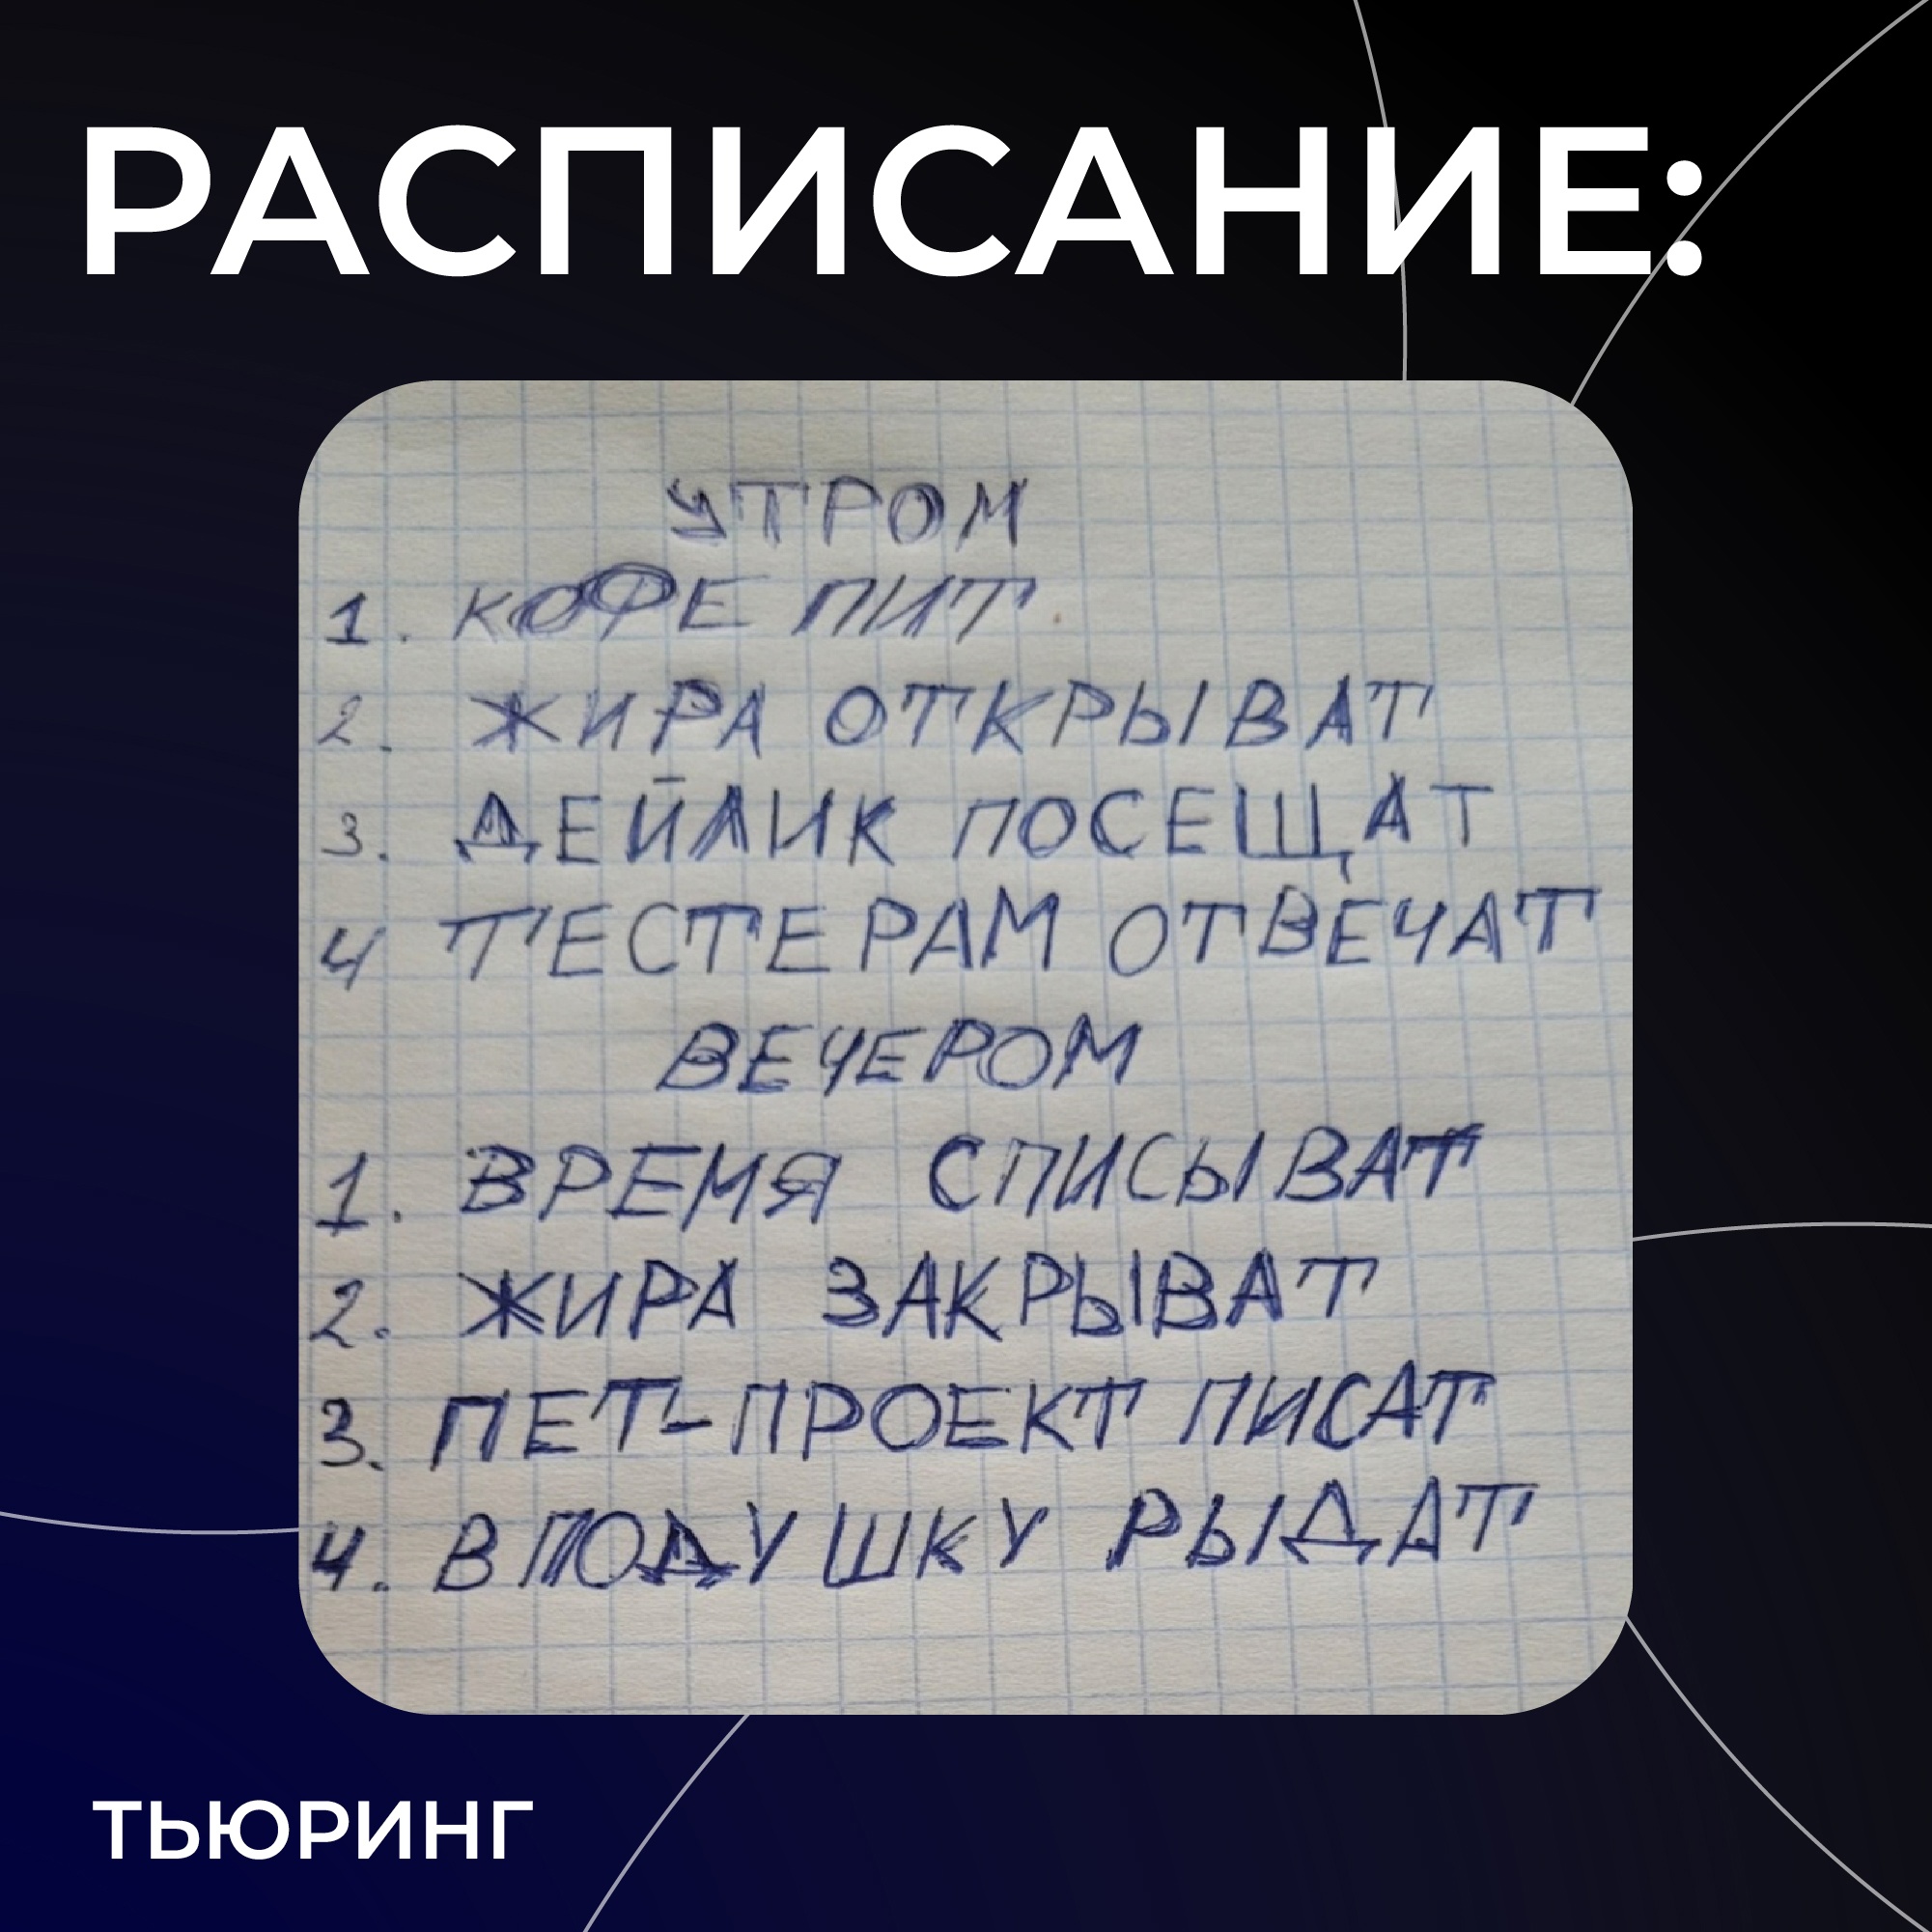 РАСПИСАНИЕ:
УТРОМ
1. КОФЕ ПИТ
2. ЖИРА ОТКРЫВАТ
3. ДЕЙЛИК ПОСЕЩАТ
4 ТЕСТЕРАМ ОТВЕЧАТ
ВЕЧЕРОМ
1. ВРЕМЯ СПИСЫВАТ
2. ЖИРА ЗАКРЫВАТ
3. ПЕТ-ПРОЕКТ ПИСАТ
4. В ПОДУШКУ РЫДАТ
ТЬЮРИНГ